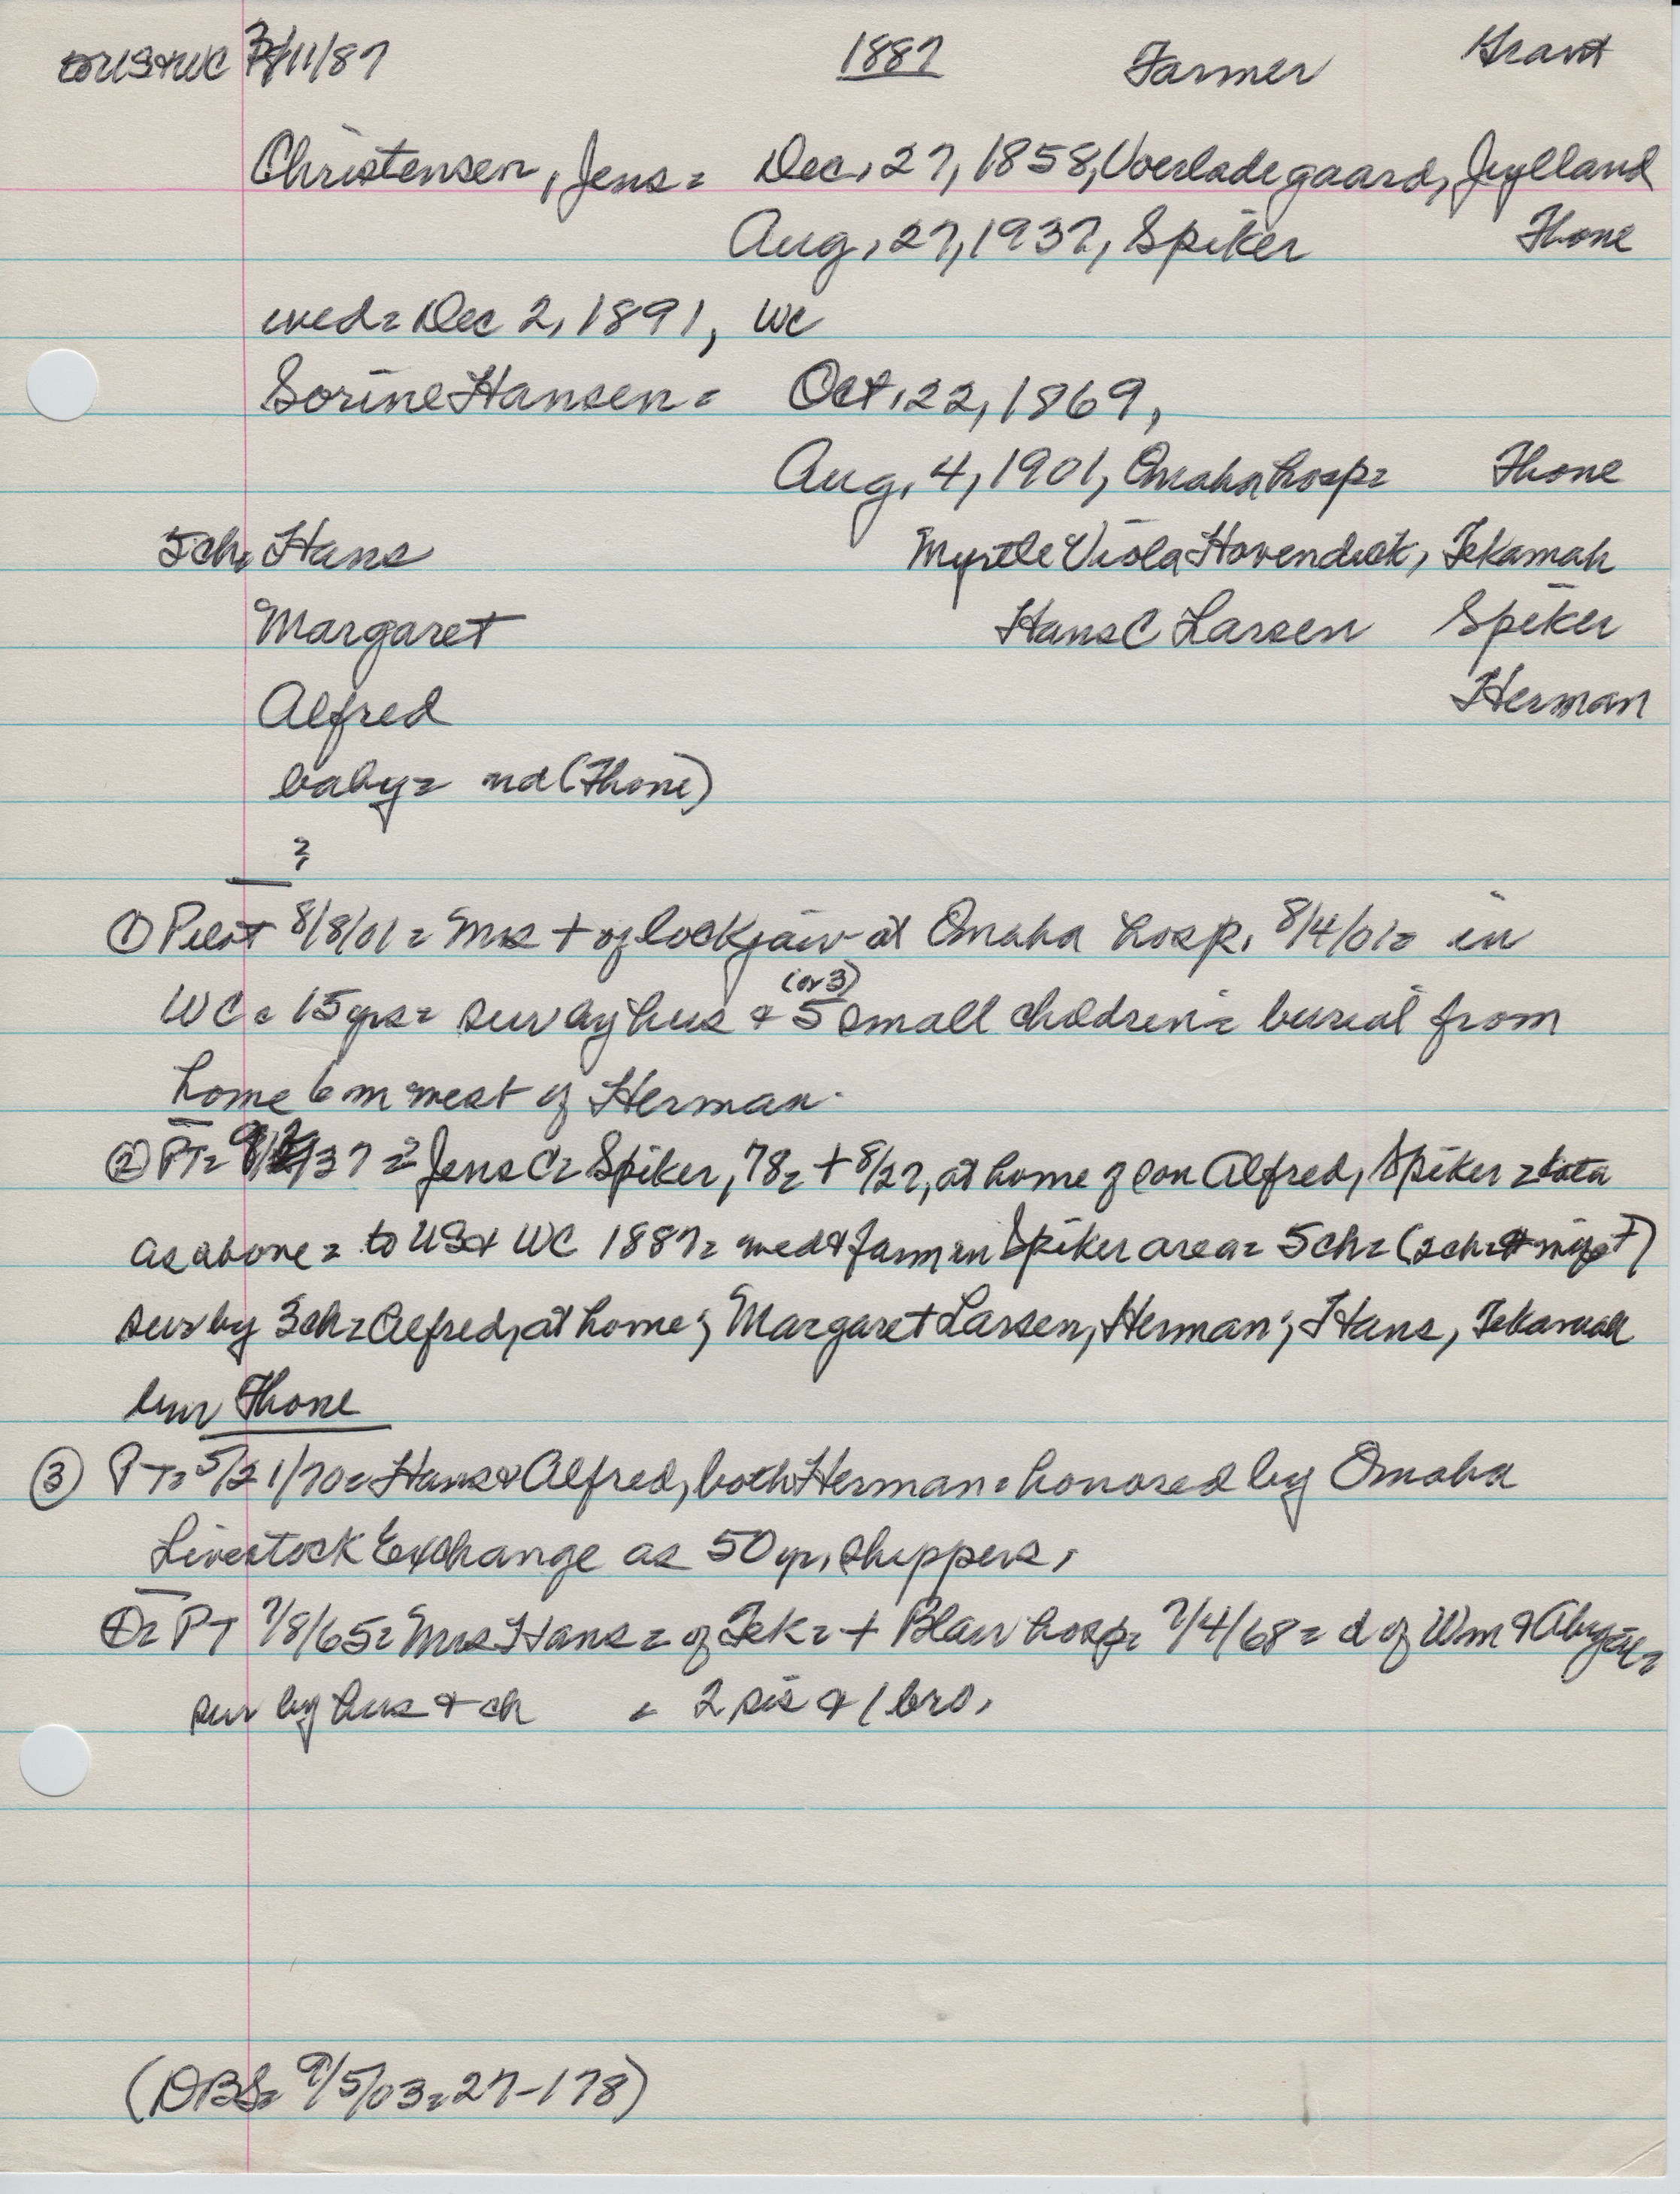 to US & WC 3/11/87 1887 Farmer Grant
Christensen, Jens = Dec, 27, 1858, Voerladegaard, Jylland
Aug, 27, 1937, Spiker Thone
wed = Dec 2, 1891, WC
Sorine Hansen = Oct, 22, 1869,
Aug, 4, 1901, Omaha hosp = Thone
5ch, Hans Myrtle Viola Hovendick, Tekamah
Margaret Hans C Larsen Spiker
Alfred Herman
baby = nd (Thone)
?
① Pilot 8/8/01 = Mrs + of lockjaw at Omaha hosp, 8/4/01 = in
WC = 15 yrs = sur by hus & 5 (or 3) small children = burial from
home 6 m west of Herman.
② PT = 37 = Jens C = Spiker, 78 = + 8/27, at home of son Alfred, Spiker = data
as above = to US & WC 1887 = wed & farm in Spiker area = 5ch = (2ch =
sur by 3ch = Alfred, at home; Margaret Larsen, Herman; Hans, Tekamah
bur Thone
③ PT = 5/21/70 = Hans & Alfred, both Herman = honored by Omaha
Livestock Exchange as 50 yr, shippers,
④ = PT 7/8/65 = Mrs Hans = of Tek = + Blair hosp = 7/4/68 = d of Wm & Abigail =
sur by hus & ch = 2 sis & 1 bro,
(DBS = 9/5/03 = 27-178)